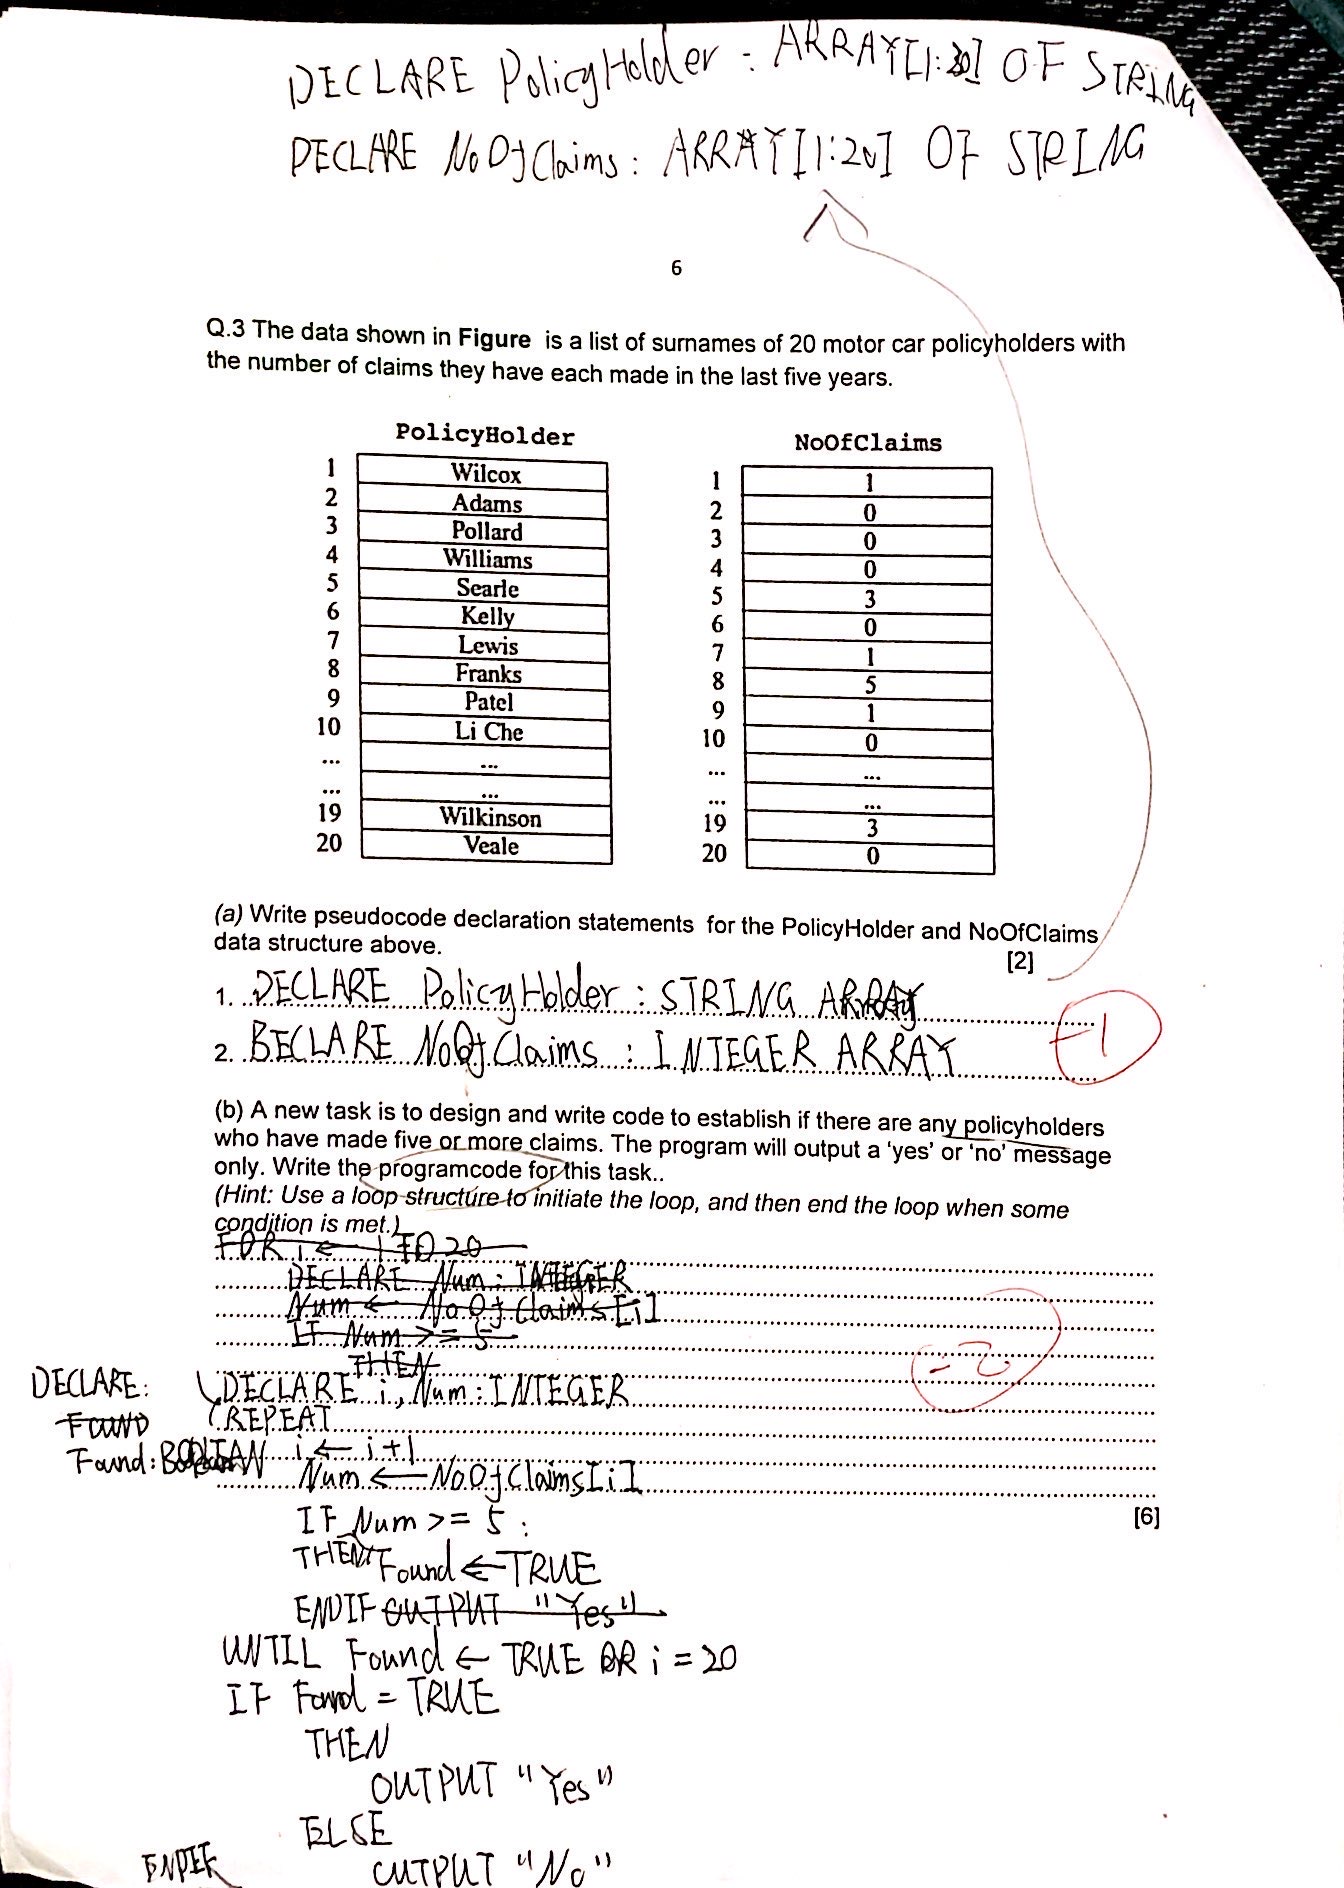 DECLARE PolicyHolder : ARRAY[1:20] OF STRING
DECLARE NoOfClaims : ARRAY[1:20] OF STRING
6
Q.3 The data shown in Figure is a list of surnames of 20 motor car policyholders with
the number of claims they have each made in the last five years.
PolicyHolder
1 Wilcox
2 Adams
3 Pollard
4 Williams
5 Searle
6 Kelly
7 Lewis
8 Franks
9 Patel
10 Li Che
... ...
... ...
19 Wilkinson
20 Veale
NoOfClaims
1 1
2 0
3 0
4 0
5 3
6 0
7 1
8 5
9 1
10 0
... ...
... ...
19 3
20 0
(a) Write pseudocode declaration statements for the PolicyHolder and NoOfClaims
data structure above.
[2]
1. DECLARE PolicyHolder : STRING ARRAY
2. DECLARE NoOfClaims : INTEGER ARRAY
-1
(b) A new task is to design and write code to establish if there are any policyholders
who have made five or more claims. The program will output a 'yes' or 'no' message
only. Write the programcode for this task..
(Hint: Use a loop structure to initiate the loop, and then end the loop when some
condition is met.)
FOR i ← 1 TO 20
DECLARE Num : INTEGER
Num ← NoOfClaims[i]
IF Num >= 5
THEN
-2
DECLARE i, Num : INTEGER
DECLARE:
Found
Found : BOOLEAN
REPEAT
i ← i+1
Num ← NoOfClaims[i]
[6]
IF Num >= 5 :
THEN Found ← TRUE
ENDIF OUTPUT "Yes"
UNTIL Found ← TRUE OR i = 20
IF Found = TRUE
THEN
OUTPUT "Yes"
ELSE
OUTPUT "No"
ENDIF